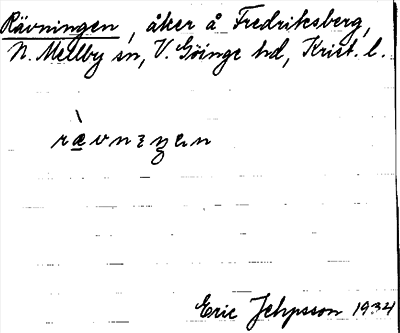 Rävningen, åker å Fredriksberg,
N. Mellby sn, V. Göinge hd, Krist. l.
Eric Jehpsson 1934